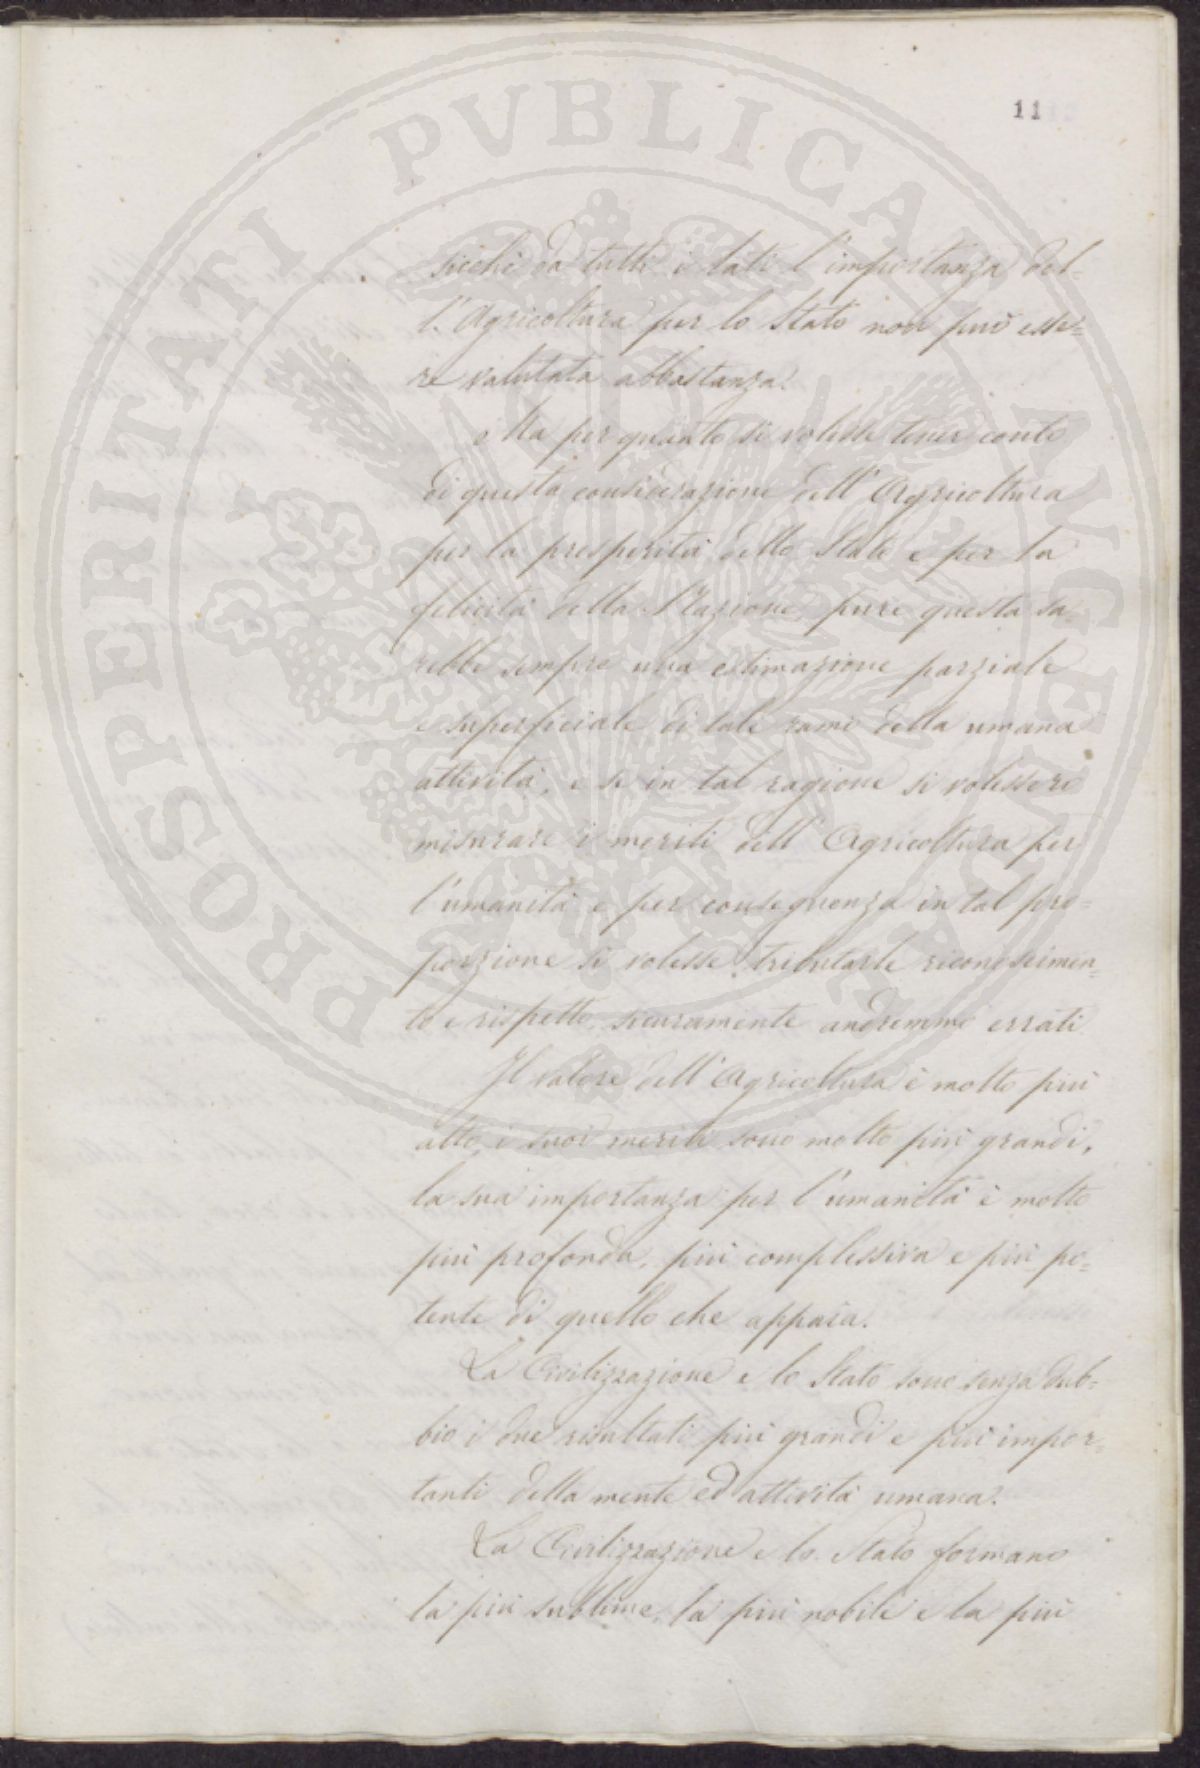 11
sicchè da tutti i lati l'importanza del-
l'Agricoltura per lo Stato non può esse=
re valutata abbastanza.
Ma per quanto si volesse tener conto
di questa considerazione dell'Agricoltura
per la prosperità dello Stato e per la
felicità della Nazione, pure questa sa-
rebbe sempre una estimazione parziale
e superficiale di tale ramo della umana
attività, e se in tal ragione si volessero
misurare i meriti dell'Agricoltura per
l'umanità e per conseguenza in tal pro-
porzione si volesse tributarle riconoscimen=
to e rispetto, sicuramente andremmo errati
Il valore dell'Agricoltura è molto più
alto, i suoi meriti sono molto più grandi,
la sua importanza per l'umanità è molto
più profonda, più complessiva e più po=
tente di quello che appaia.
La Civilizzazione e lo Stato sono senza dub=
bio i due risultati più grandi e più impor=
tanti della mente ed attività umana.
La Civilizzazione e lo Stato formano
la più sublime, la più nobile e la più
PROSPERITATI PVBLICAE AVGENDAE